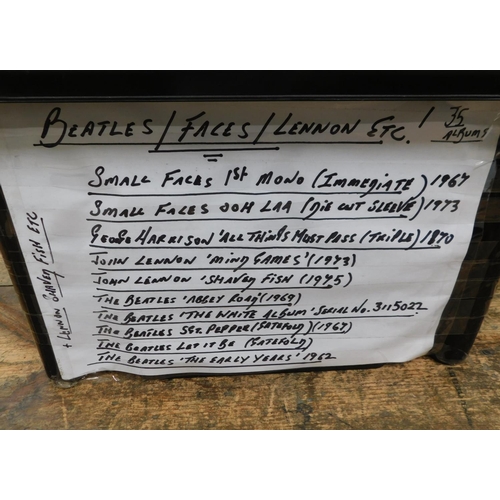 BEATLES / FACES / LENNON ETC. ! 35 ALBUMS
SMALL FACES 1st MONO (IMMEDIATE) 1967
SMALL FACES OOH LAA (DIE CUT SLEEVE) 1973
GEORGE HARRISON 'ALL THINGS MOST PASS (TRIPLE) 1870
JOHN LENNON 'MIND GAMES' (1973)
JOHN LENNON 'SHAVED FISH (1975)
THE BEATLES 'ABBEY ROAD' (1969)
THE BEATLES 'THE WHITE ALBUM' SERIAL NO. 3115022
THE BEATLES SGT. PEPPER (GATEFOLD) (1967)
THE BEATLES LET IT BE (GATEFOLD)
THE BEATLES 'THE EARLY YEARS' 1962
+ LENNON SHAVED FISH ETC